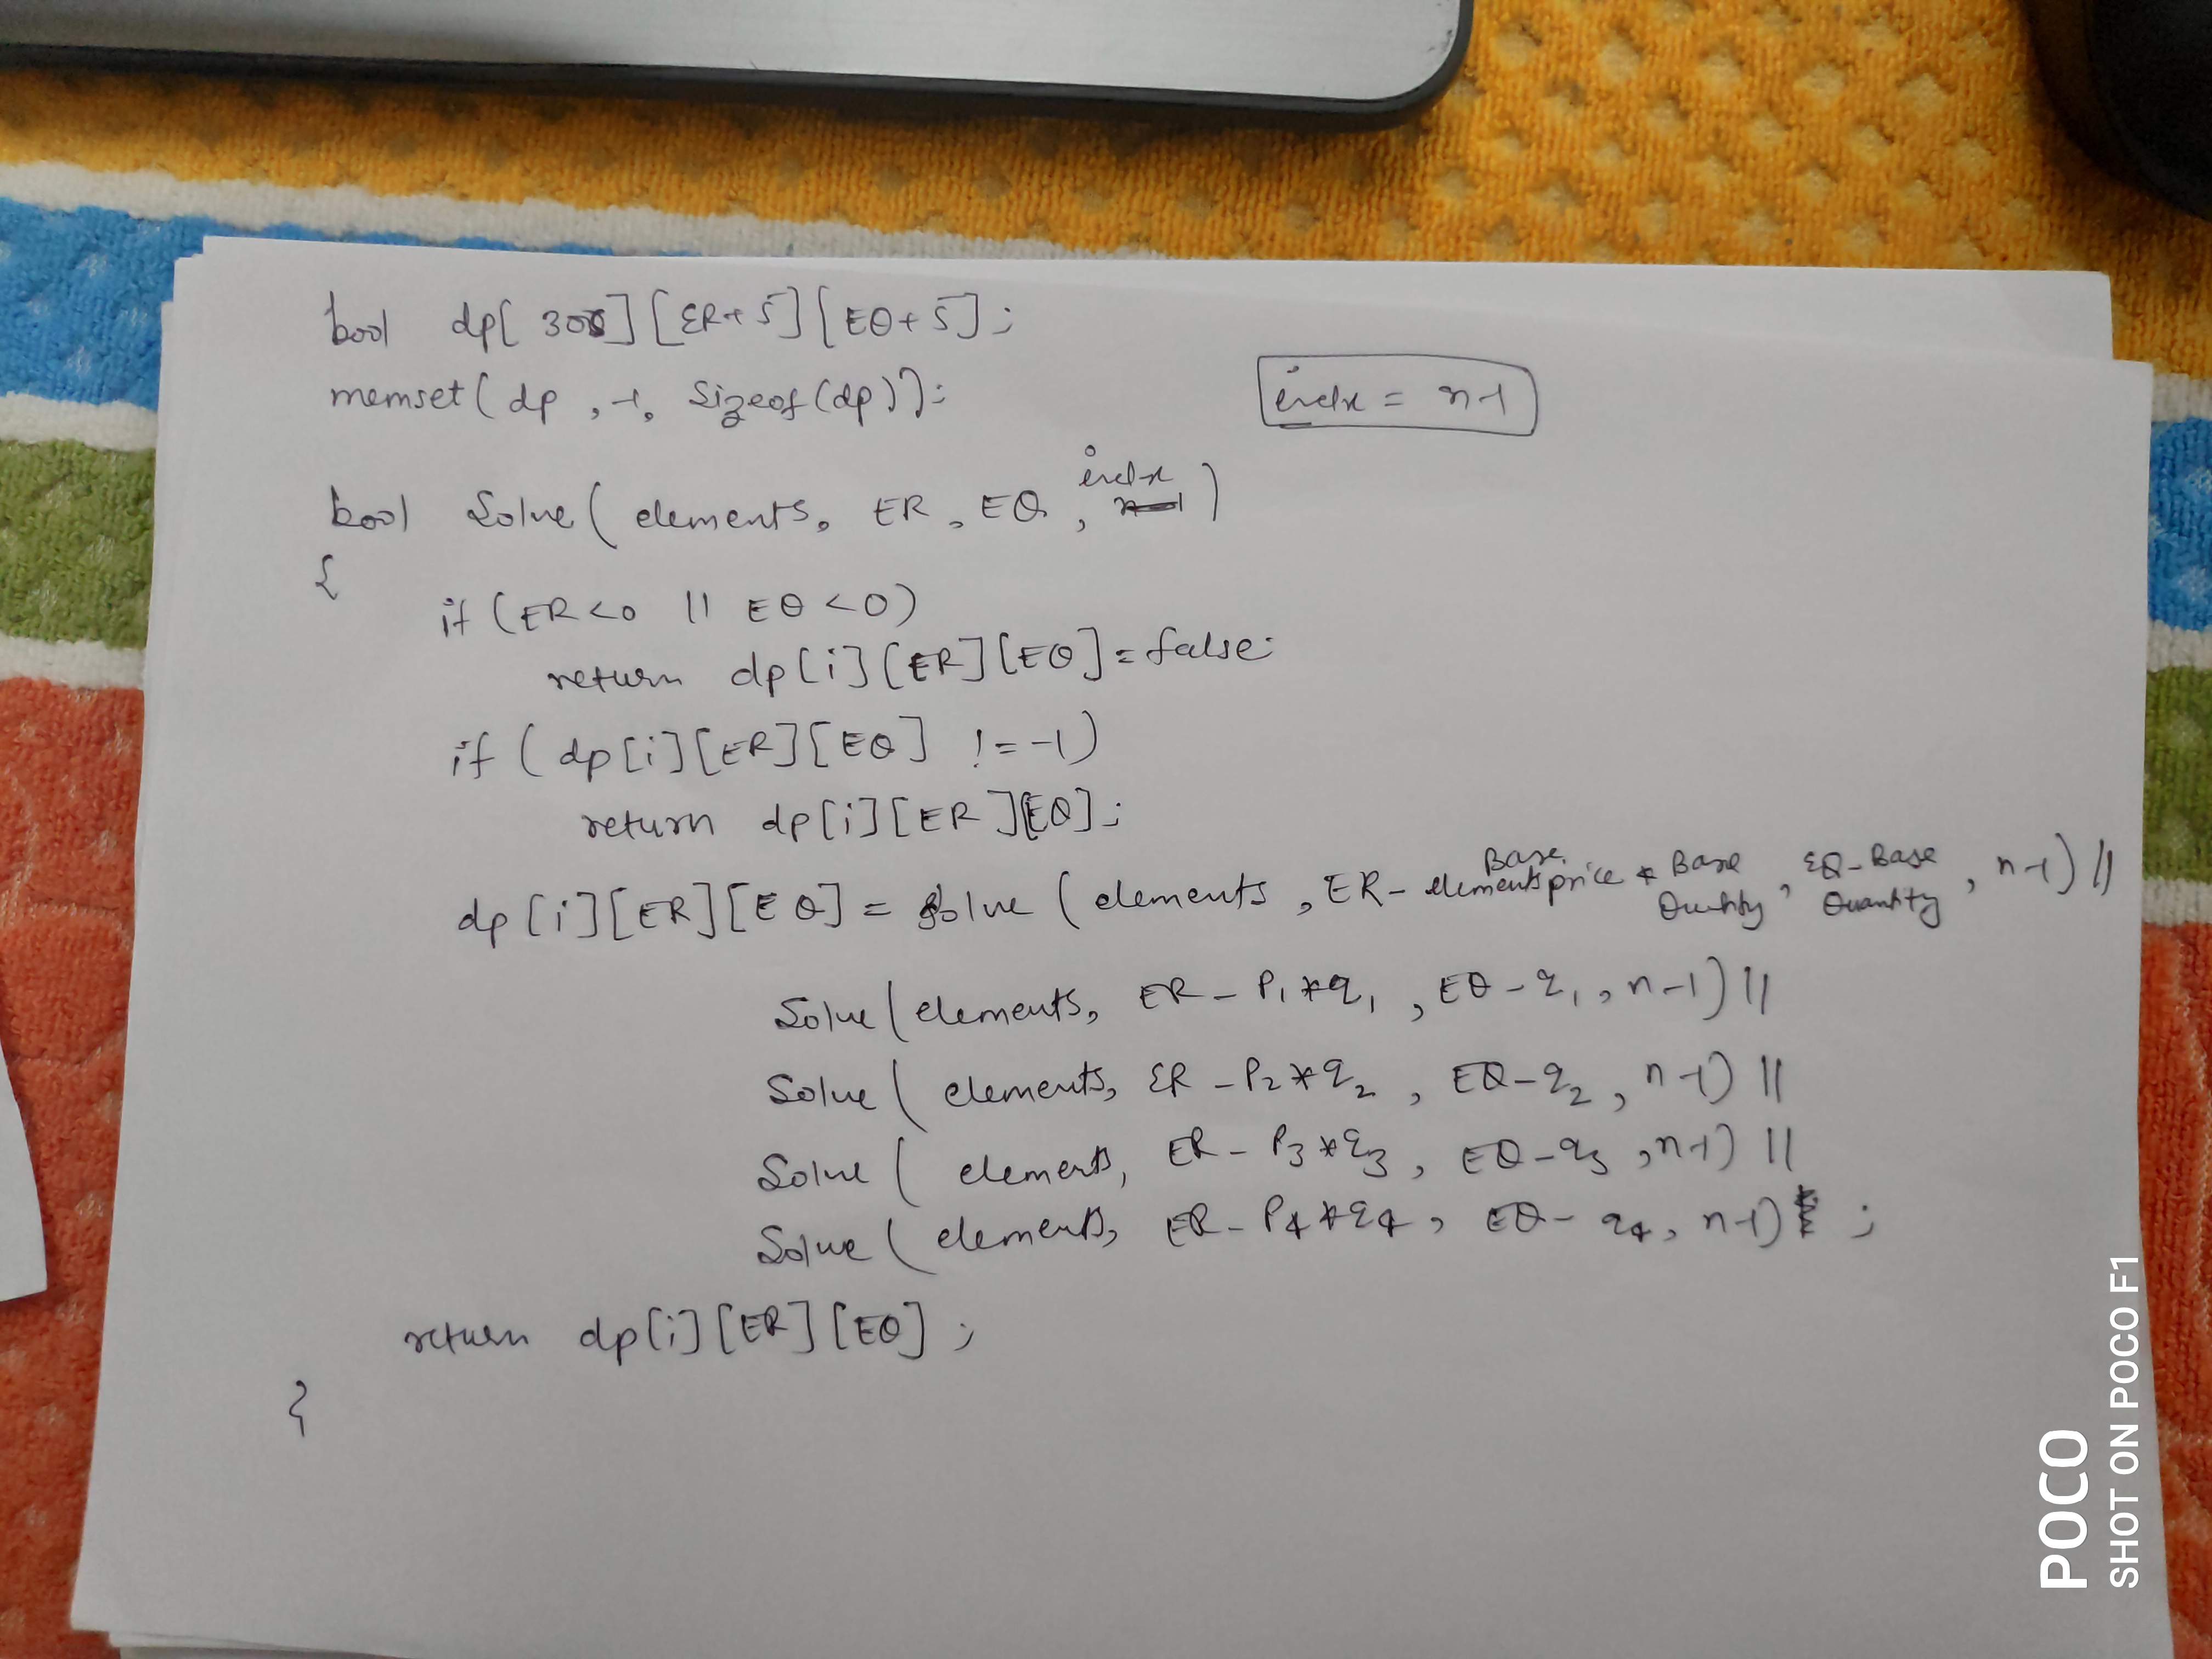 bool dp[300][ER+5][EQ+5];
memset(dp, -1, sizeof(dp));
indx = n-1
indx
bool Solve( elements, ER, EQ, n-1)
{
if (ER<0 || EQ<0)
return dp[i][ER][EQ]=false;
if ( dp[i][ER][EQ] != -1)
return dp[i][ER][EQ];
dp[i][ER][EQ] = Solve ( elements, ER- elements Base price * Base Quantity, EQ-Base Quantity, n-1) ||
Solve(elements, ER-P1*q1, EQ-q1, n-1) ||
Solve( elements, ER-P2*q2, EQ-q2, n-1) ||
Solve( elements, ER-P3*q3, EQ-q3, n-1) ||
Solve( elements, ER-P4*q4, EQ-q4, n-1) ;
return dp[i][ER][EQ];
}
POCO
SHOT ON POCO F1